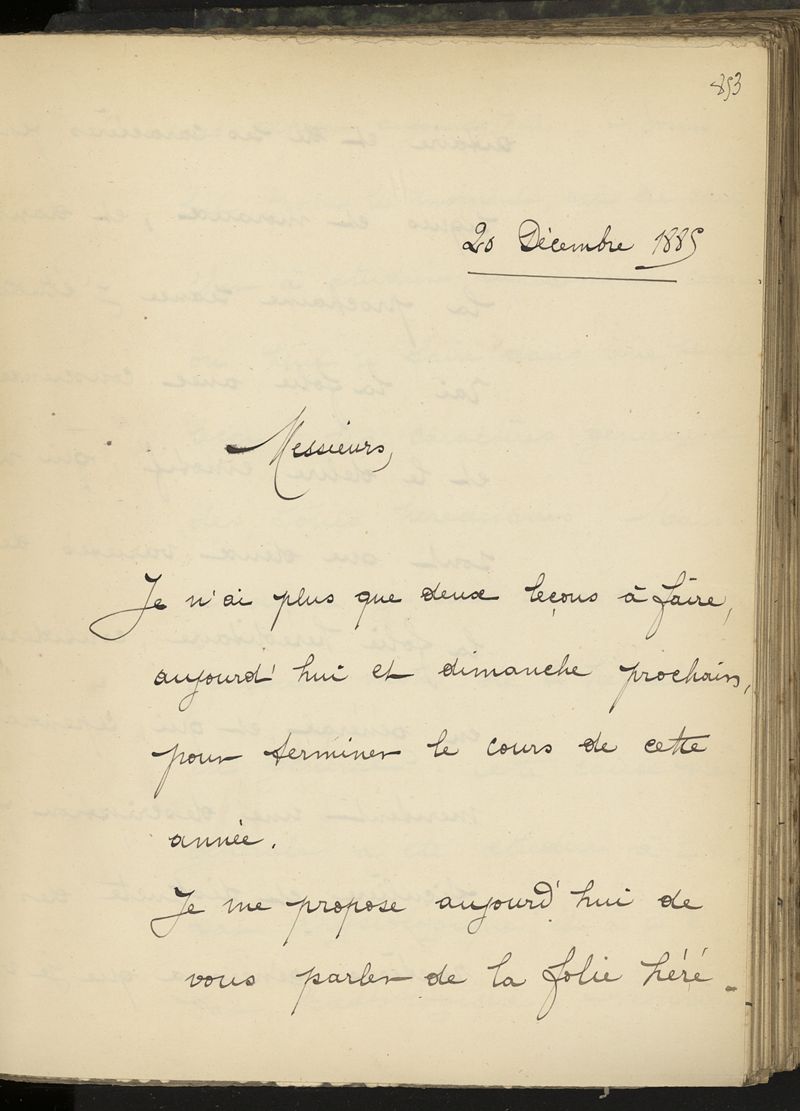 853
20 Décembre 1885
Messieurs,
Je n'ai plus que deux leçons à faire,
aujourd'hui et dimanche prochain,
pour terminer le cours de cette
année.
Je me propose aujourd'hui de
vous parler de la folie héré-